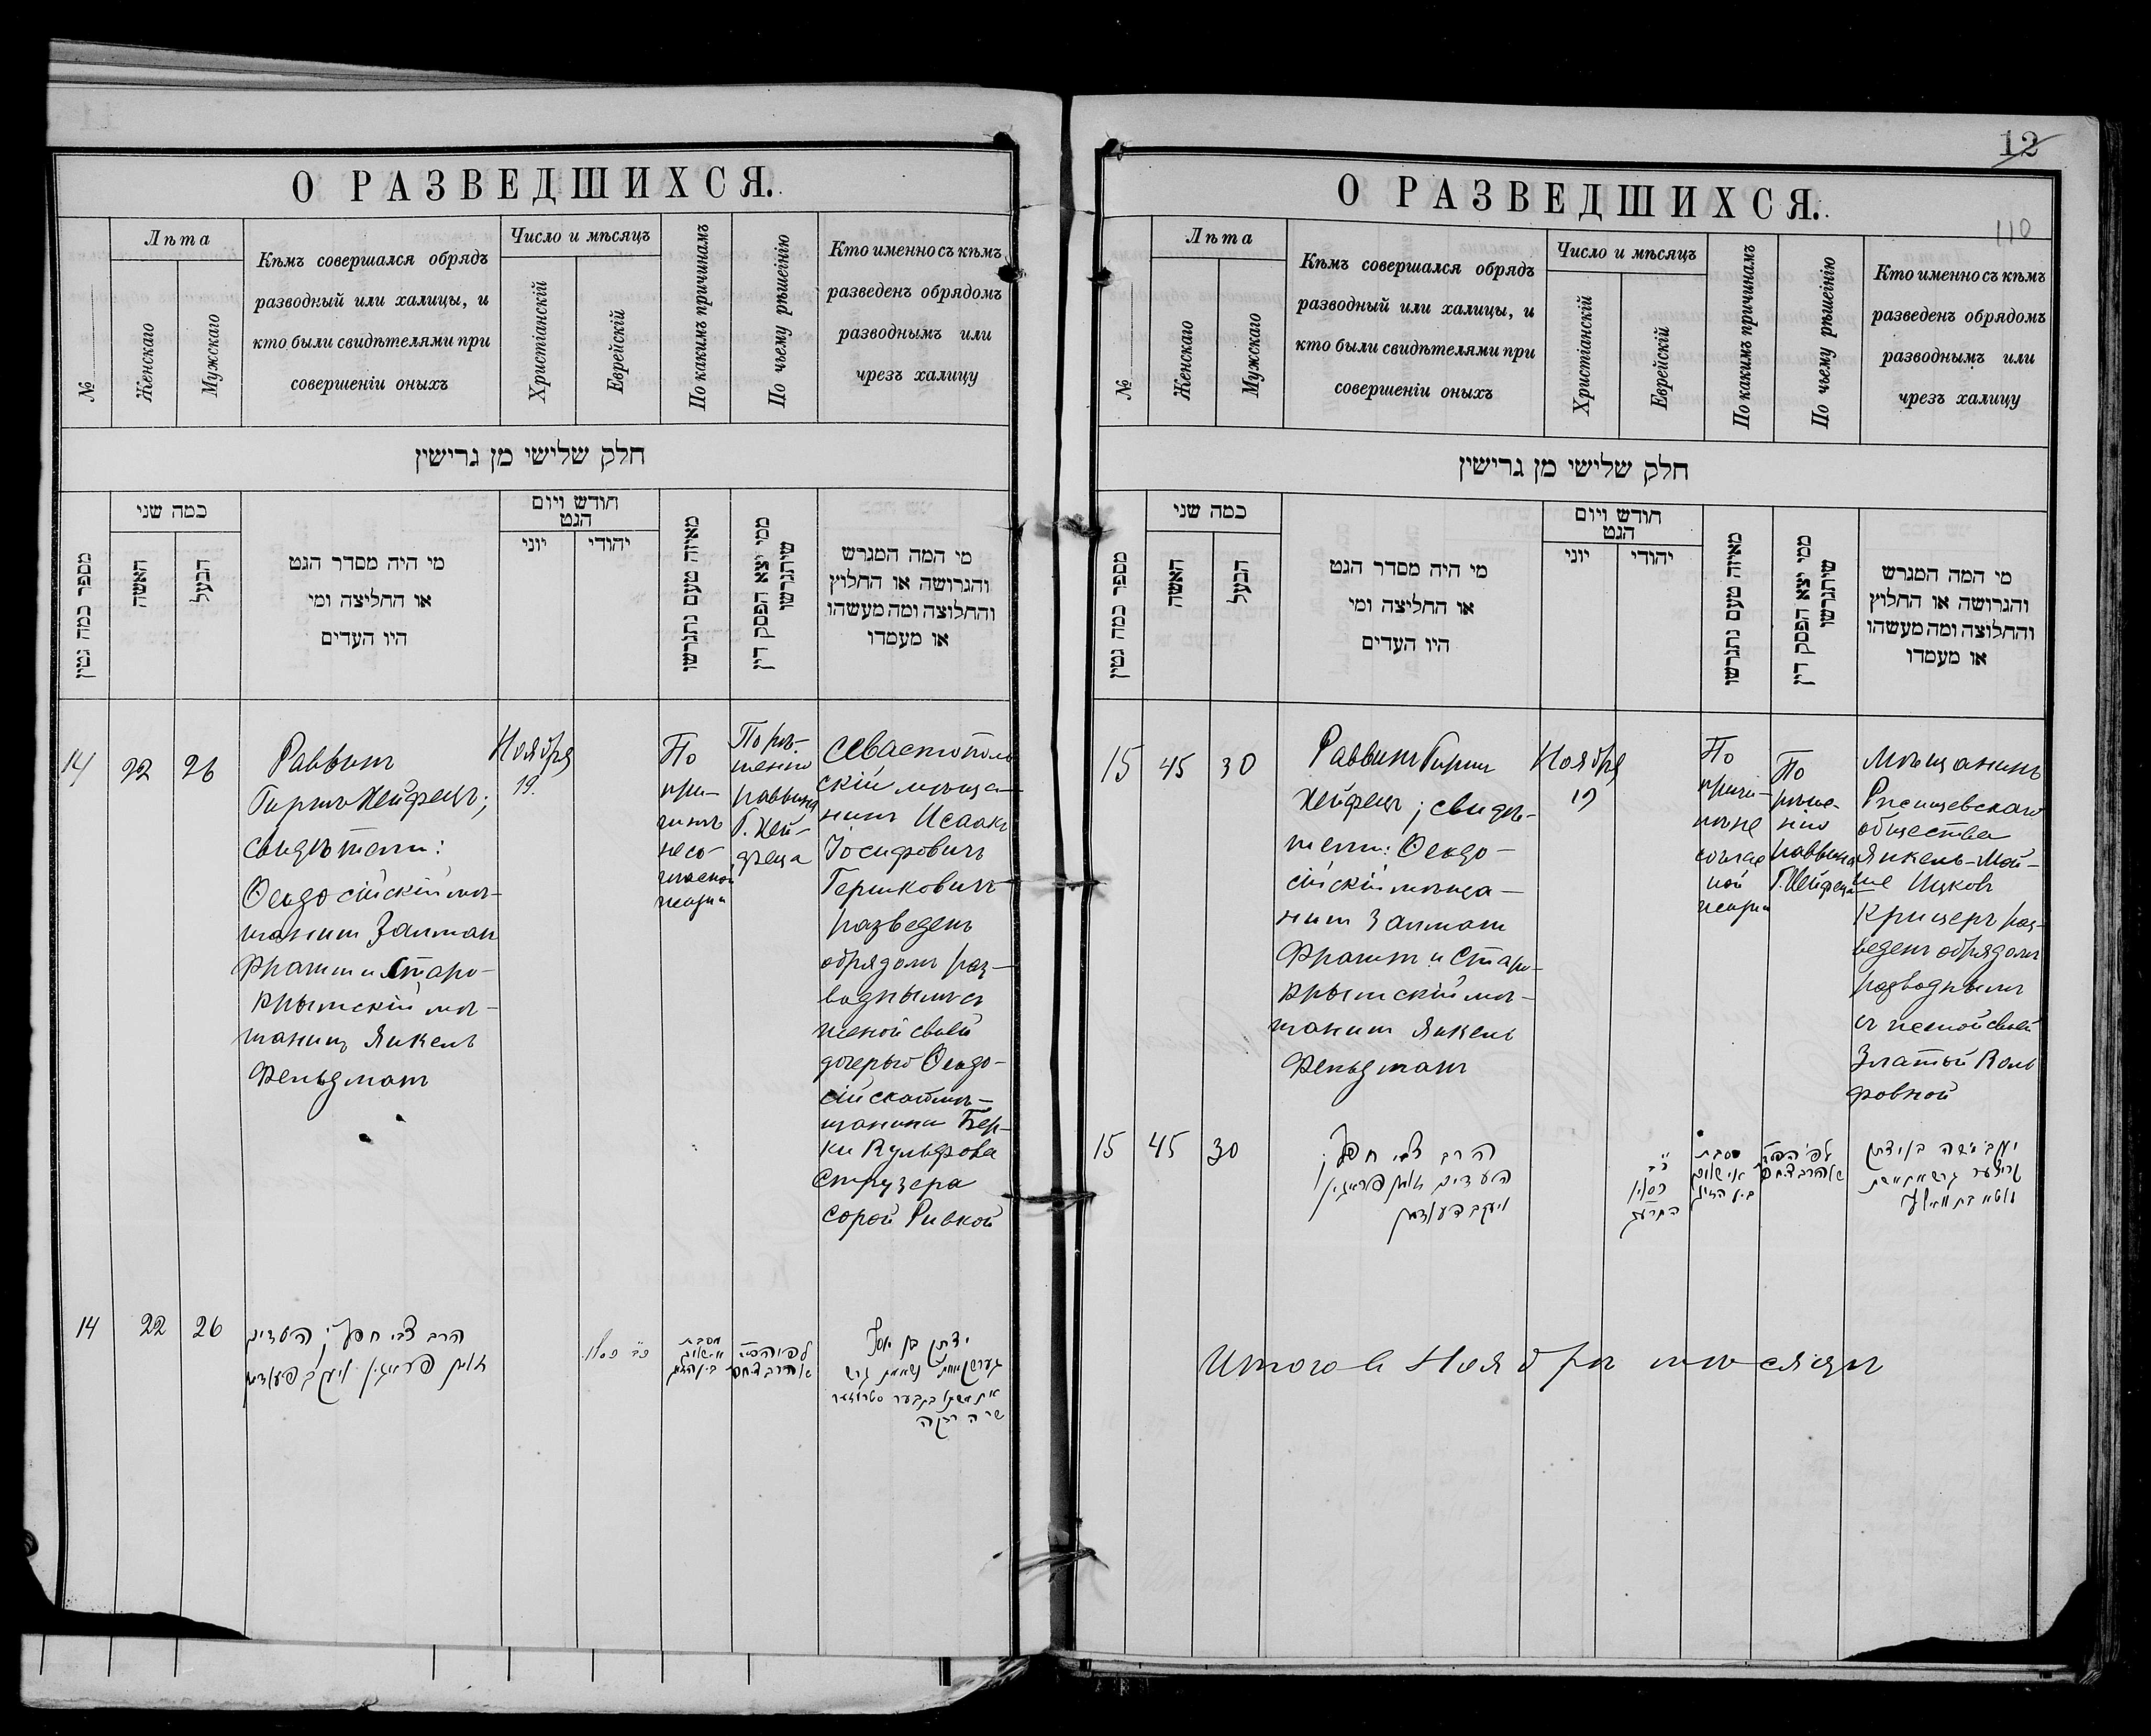 О РАЗВЕДШИХСЯ.
№
Лѣта
Женскаго
Мужскаго
Кѣмъ совершался обрядъ
разводный или халицы, и
кто были свидѣтелями при
совершеніи оныхъ
Число и мѣсяцъ
Христіанскій
Еврейскій
По какимъ причинамъ
По чьему рѣшенію
Кто именно съ кѣмъ
разведенъ обрядомъ
разводнымъ или
чрезъ халицу
חלק שלישי מן גרישין
מספר כמה גטין
כמה שני
האשה
הבעל
מי היה מסדר הגט
או החליצה ומי
היו העדים
חודש ויום
הגט
יוני
יהודי
מאיזה טעם נתגרשו
ממי יצא הפסק דין
שיתגרשו
מי המה המגרש
והגרושה או החלוץ
והחלוצה ומה מעשהו
או מעמדו
14
22
26
Раввинъ
Гиршъ Хейфецъ;
свидѣтели:
Ѳеодосійскій мѣ-
щанинъ Залман
Фраинъ и Старо-
крымскій мѣ-
щанинъ Янкель
Фельдманъ
Ноября
19.
По
при-
чинѣ
несо-
гласной
жизни
По рѣ-
шенію
раввина
Г. Хей-
феца
Севастополь
скій мѣща-
нинъ Исаакъ
Іосифовичъ
Гершковичъ
разведенъ
обрядомъ раз-
воднымъ съ
женой своей
дочерью Ѳеодо-
сійскаго мѣ-
щанина Бер-
ки Вульфова
Струзера
Сорой Ривкой
14
22
26
הרב צבי חפץ; העדים
יצחק בן יוסף
שרה רבקה
12
110
О РАЗВЕДШИХСЯ.
№
Лѣта
Женскаго
Мужскаго
Кѣмъ совершался обрядъ
разводный или халицы, и
кто были свидѣтелями при
совершеніи оныхъ
Число и мѣсяцъ
Христіанскій
Еврейскій
По какимъ причинамъ
По чьему рѣшенію
Кто именно съ кѣмъ
разведенъ обрядомъ
разводнымъ или
чрезъ халицу
חלק שלישי מן גרישין
מספר כמה גטין
כמה שני
האשה
הבעל
מי היה מסדר הגט
או החליצה ומי
היו העדים
חודש ויום
הגט
יוני
יהודי
מאיזה טעם נתגרשו
ממי יצא הפסק דין
שיתגרשו
מי המה המגרש
והגרושה או החלוץ
והחלוצה ומה מעשהו
או מעמדו
15
45
30
Раввинъ Гиршъ
Хейфецъ; свидѣ-
тели: Ѳеодо-
сійскій мѣща-
нинъ Залманъ
Фраинъ и Старо-
крымскій мѣ-
щанинъ Янкель
Фельдманъ
Ноября
19
По
причи-
нѣ не
соглас
ной
жизни
По
рѣше-
нію
раввина
Г. Хейфеца
Мѣщанинъ
общества
Янкель-Мой-
ше Ицковъ
Крицеръ раз-
веденъ обрядомъ
разводнымъ
съ женой своей
Златой Воль
фовной
15
45
30
הרב צבי חפץ;
Итого въ Ноябрѣ мѣсяцѣ